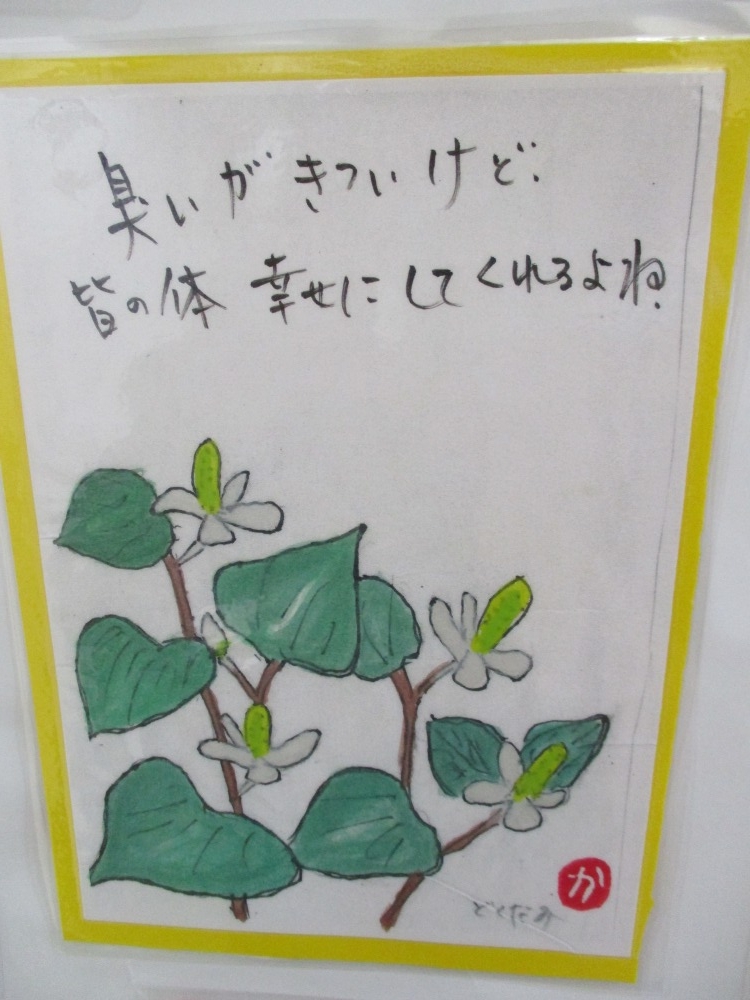 臭いがきついけど、
皆の体 幸せにしてくれるよね
か
どくだみ